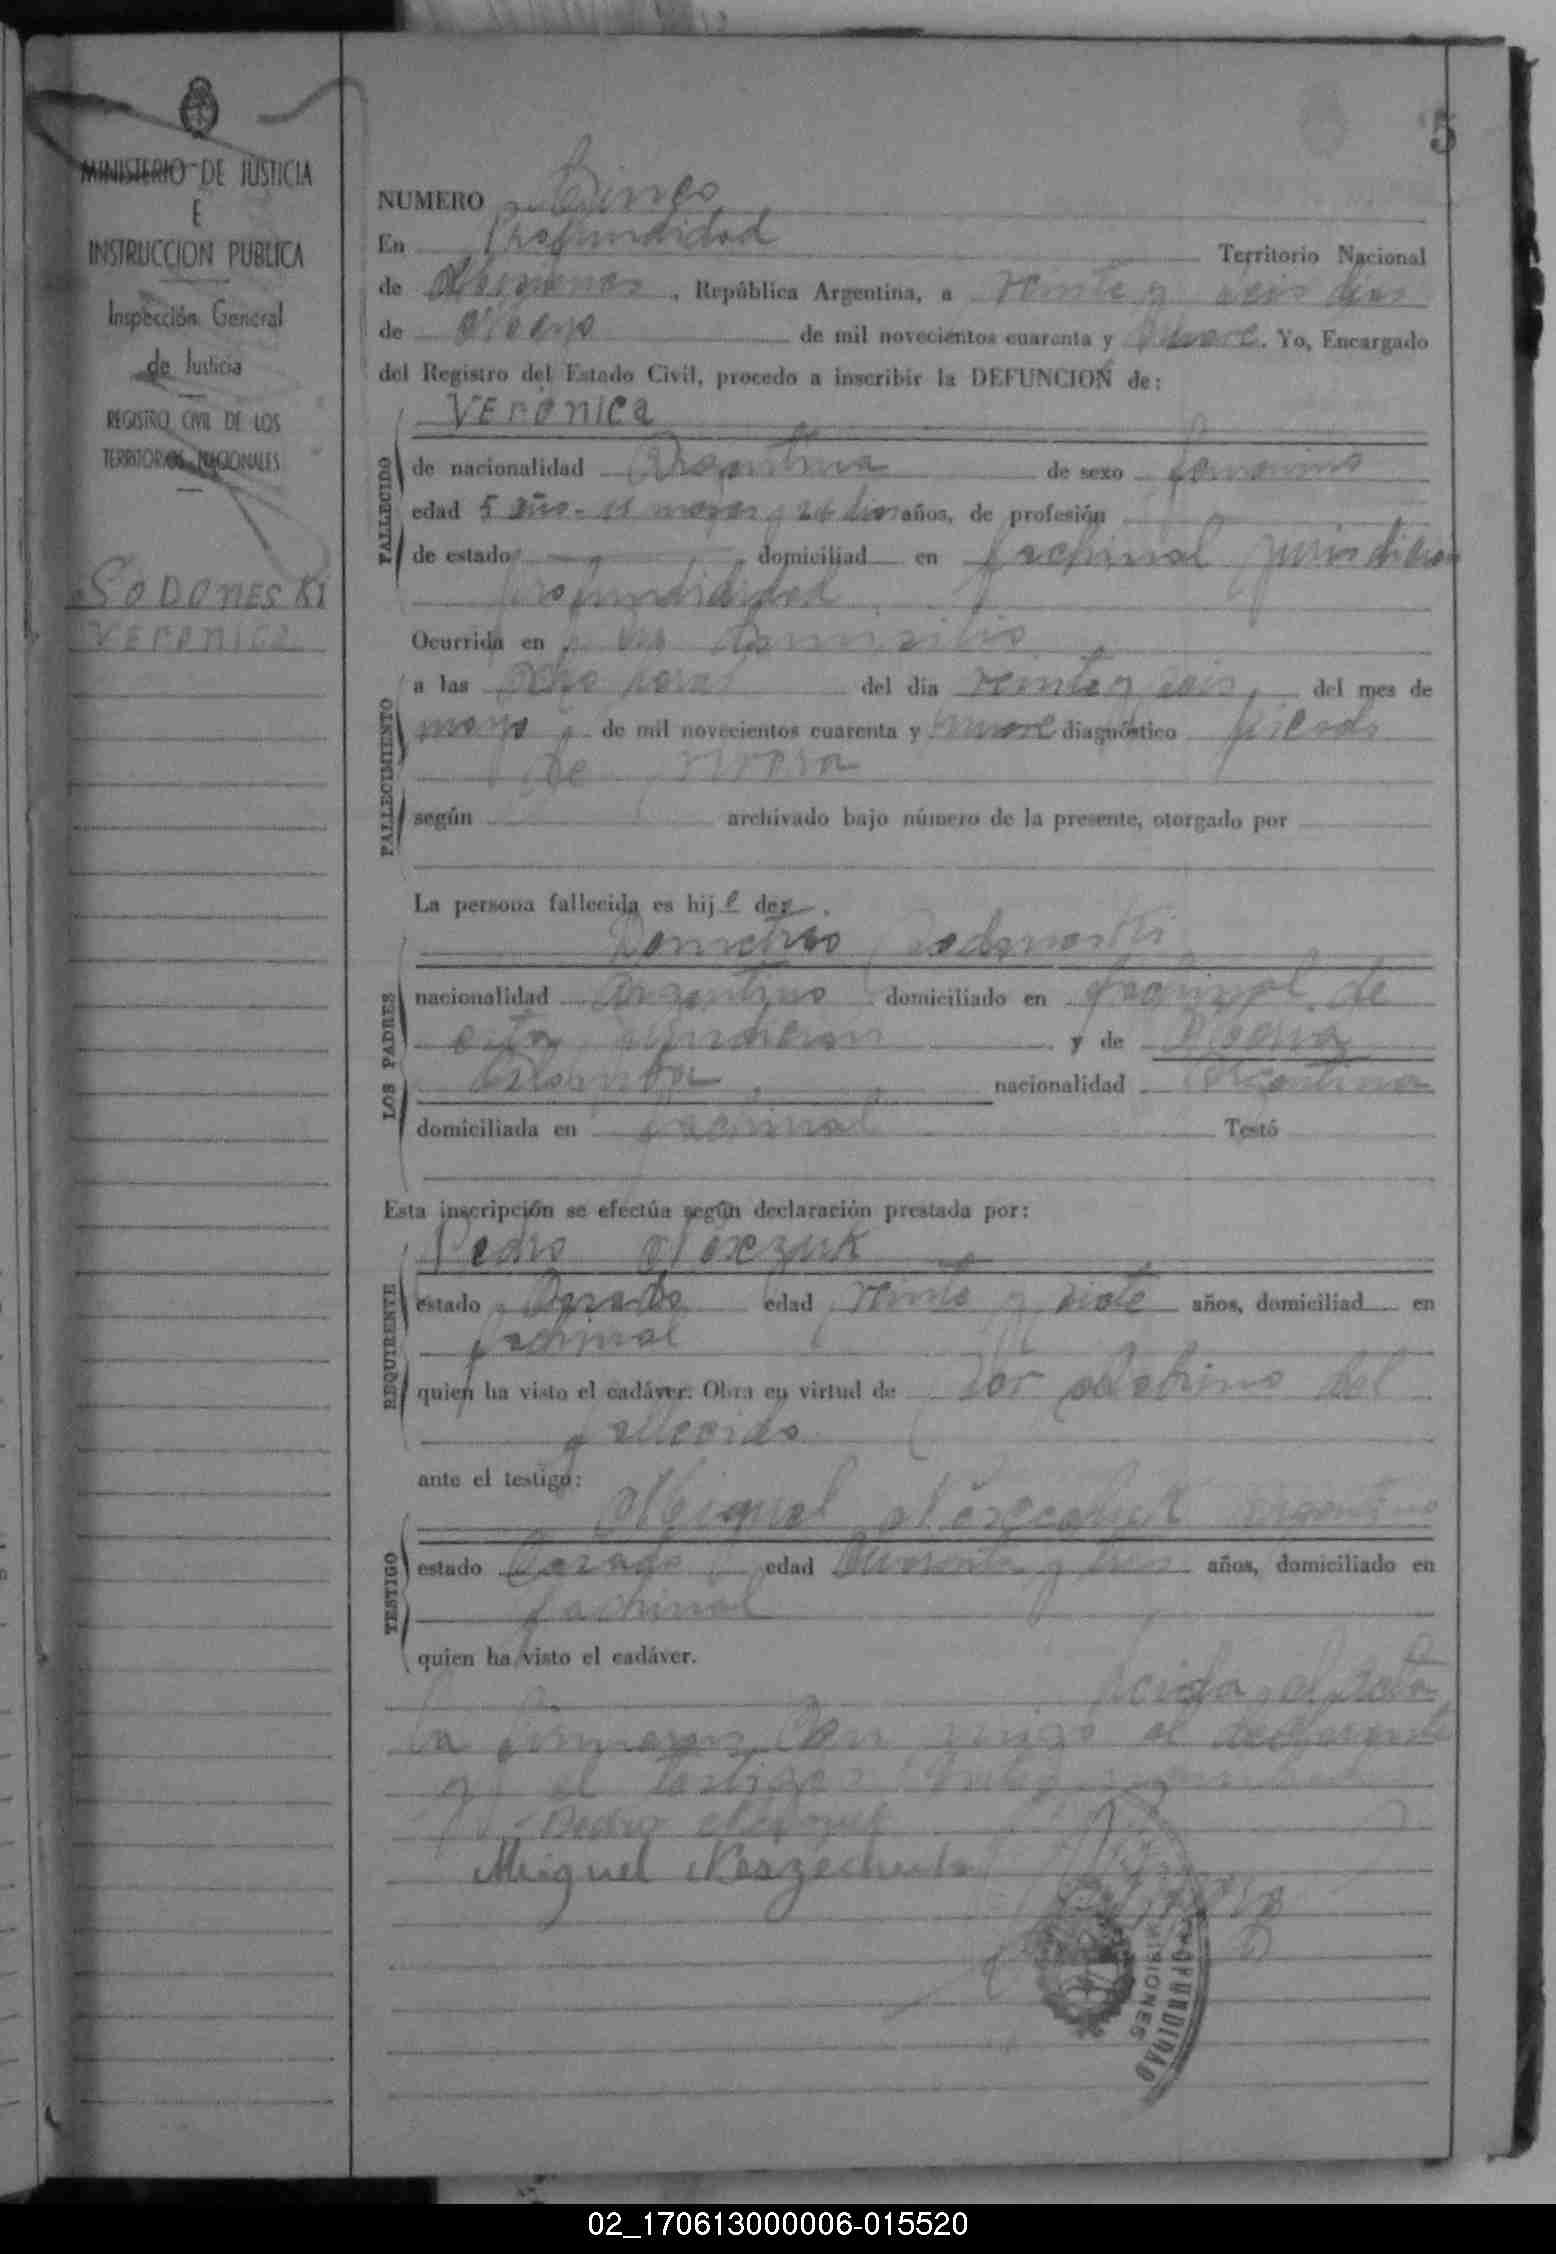 5
MINISTERIO DE JUSTICIA
E
INSTRUCCION PUBLICA
Inspección General
de Justicia
REGISTRO CIVIL DE LOS
TERRITORIOS NACIONALES
SODONESKI
VERONICA
NUMERO Cinco
En Profundidad Territorio Nacional
de Misiones, República Argentina, a veinte y seis dias
de Mayo de mil novecientos cuarenta y nueve. Yo, Encargado
del Registro del Estado Civil, procedo a inscribir la DEFUNCION de:
VERONICA
FALLECIDO
de nacionalidad Argentina de sexo femenino
edad 5 año - 11 meses y 26 dias años, de profesión
de estado domiciliad en fachinal jurisdicion
profundidad
FALLECIMIENTO
Ocurrida en su domisilio
a las ocho horas del día veinte y seis del mes de
mayo de mil novecientos cuarenta y nueve diagnóstico
de
según archivado bajo número de la presente, otorgado por
La persona fallecida es hij de
LOS PADRES
Demetrio Sodonoski
nacionalidad Argentino domiciliado en fachinal de
esta jurisdicion y de
nacionalidad Argentina
domiciliada en fachinal Testó
Esta inscripción se efectúa según declaración prestada por:
REQUIRENTE
Pedro
estado Casado edad veinte y siete años, domiciliad en
fachinal
quien ha visto el cadáver. Obra en virtud de por sobrino del
fallecido
ante el testigo:
TESTIGO
Miguel argentino
estado Casado edad cuarenta y tres años, domiciliado en
fachinal
quien ha visto el cadáver.
leida el acta
la firmaron con migo el declarante
y el testigo
Pedro
Miguel
PROFUNDIDAD
MISIONES
02_170613000006-015520